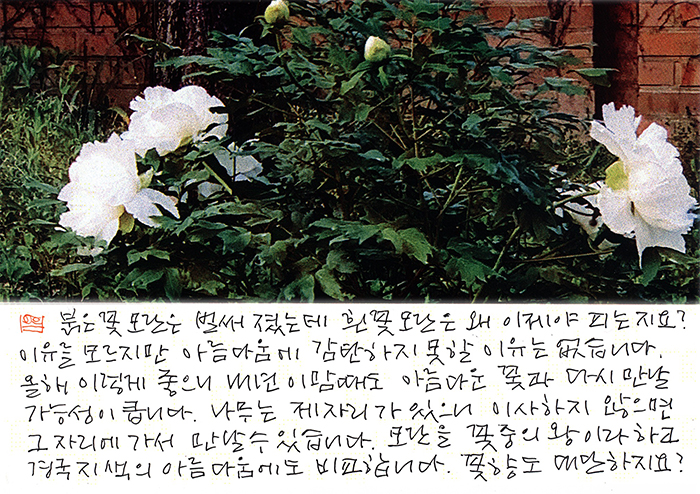 붉은꽃 모란은 벌써 졌는데 흰꽃모란은 왜 이제야 피는지요?
이유를 모르지만 아름다움에 감탄하지 못할 이유는 없습니다.
올해 이렇게 좋으니 내년 이맘때도 아름다운 꽃과 다시 만날
가능성이 큽니다. 나무는 제자리가 있으니 이사하지 않으면
그 자리에 가서 만날 수 있습니다. 모란을 꽃중의 왕이라 하고
경국지색의 아름다움에도 비교합니다. 꽃향도 대단하지요?